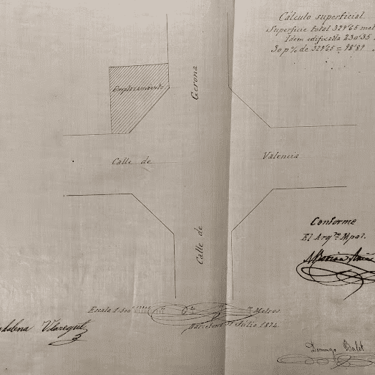 Cálculo superficial
Superficie total 321'25 met
Idem edificada 230'35
30 p% de 321'25
Emplazamiento
Gerona
Calle de
Valencia
Calle de
Conforme
El Arqto. Mpal.
Escala 1
Metros
Barcelona
Julio 1872
Domingo Balet